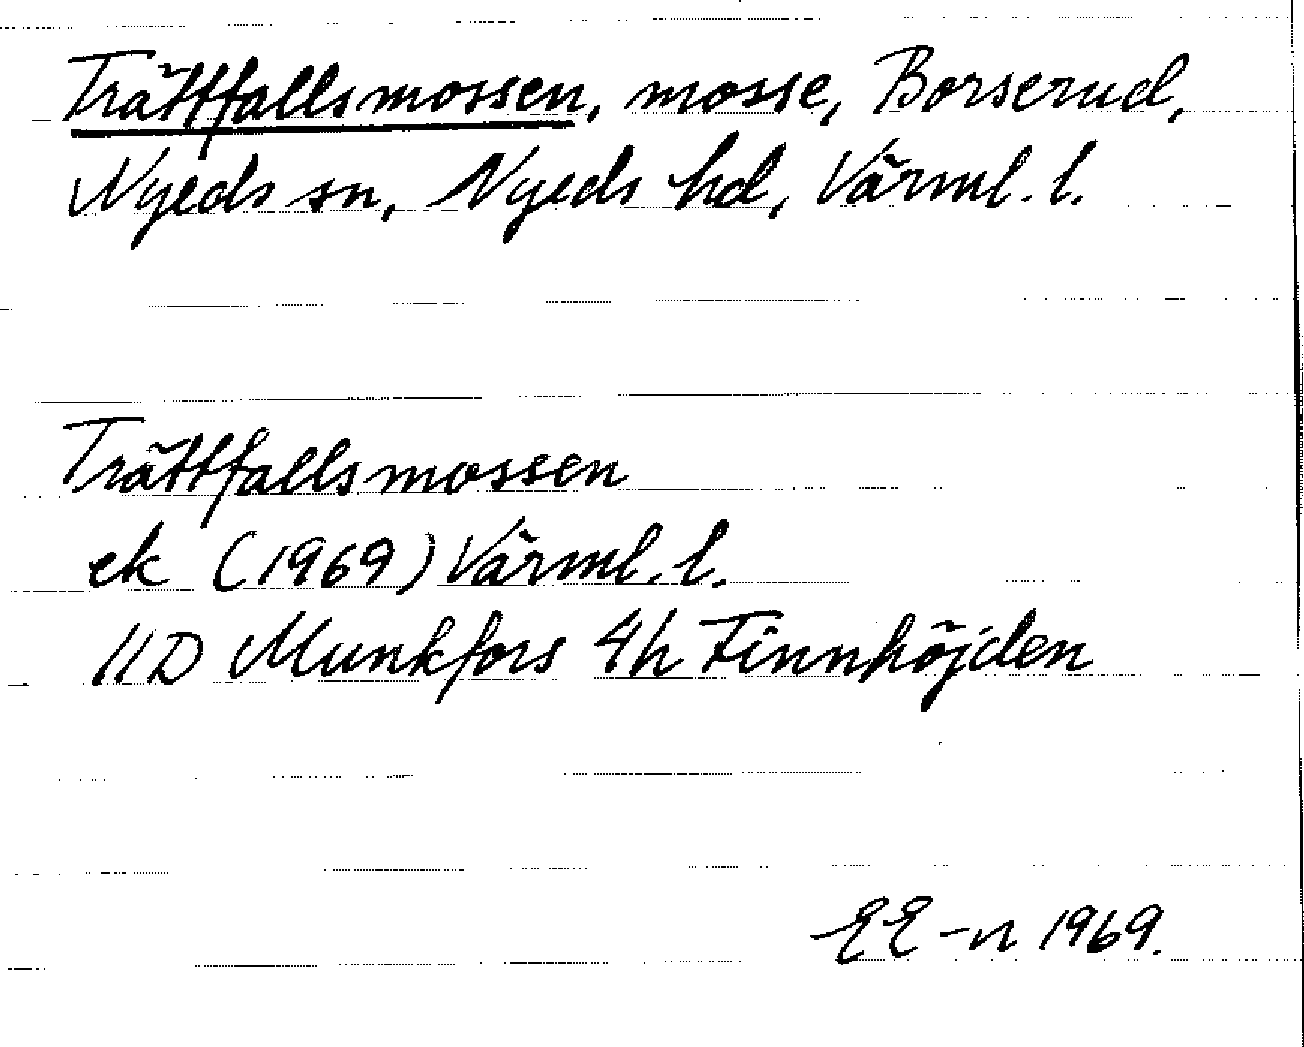 Trättfallsmossen, mosse, Borserud,
Nyeds sn, Nyeds hd, Värml. l.
Trättfallsmossen
ek (1969) Värml. l.
11D Munkfors 4h Finnhöjden
EE-n 1969.